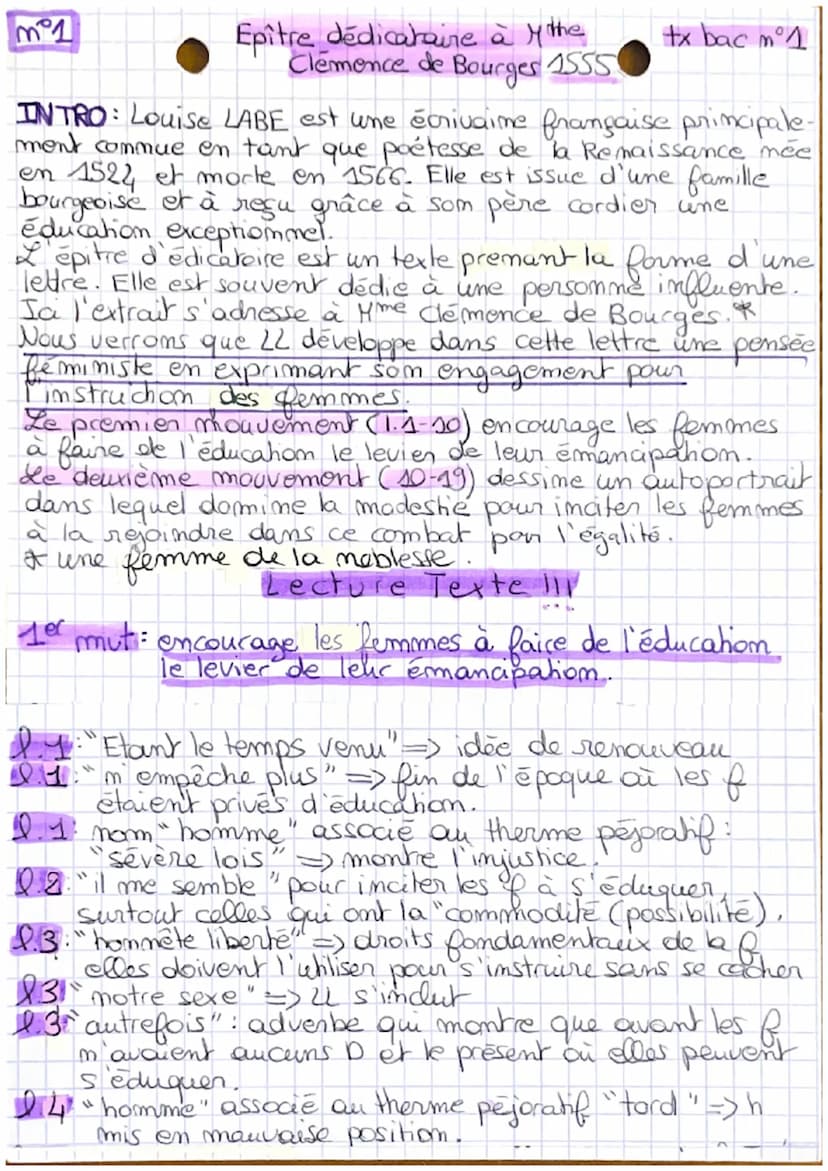 n°1
Epître dédicataire à Mthe
tx bac n°1
Clémence de Bourges 1555
INTRO: Louise LABE est une écrivaine française principale-
ment connue en tant que poétesse de la Renaissance née
en 1524 et morte en 1566. Elle est issue d'une famille
bourgeoise et à reçu grâce à son père cordier une
éducation exceptionnel.
L'épitre d'édicatoire est un texte prenant la forme d'une
lettre. Elle est souvent dédie à une personne influente.
Ici l'extrait s'adresse à Mme Clémence de Bourges.*
Nous verrons que LL développe dans cette lettre une pensée
féministe en exprimant son engagement pour
l'instruction des femmes.
Le premier mouvement (l.1-10) encourage les femmes
à faire de l'éducation le levier de leur émancipation.
Le deuxième mouvement (10-19) dessine un autoportrait
dans lequel domine la modestie pour inciter les femmes
à la rejoindre dans ce combat par l'égalité.
* une femme de la noblesse.
Lecture Texte !!!
1er mvt: encourage les femmes à faire de l'éducation
le levier de leur émancipation.
l.1:"Etant le temps venu" => idée de renouveau
l.1:"n'empêche plus" => fin de l'époque où les f
étaient privés d'éducation.
l.1: nom "homme" associé au therme péjoratif:
"sévère lois" => montre l'injustice.
l.2:"il me semble" pour inciter les f à s'éduquer,
surtout celles qui ont la "commodité (possibilité).
l.3:"honnête liberté" => droits fondamentaux de la f
elles doivent l'utiliser pour s'instruire sans se cacher
l3:"notre sexe" => LL s'inclut
l.3:"autrefois": adverbe qui montre que avant les f
n'avaient aucuns D et le présent où elles peuvent
s'éduquer.
l4 "homme" associé au therme péjoratif "tord" => h
mis en mauvaise position.